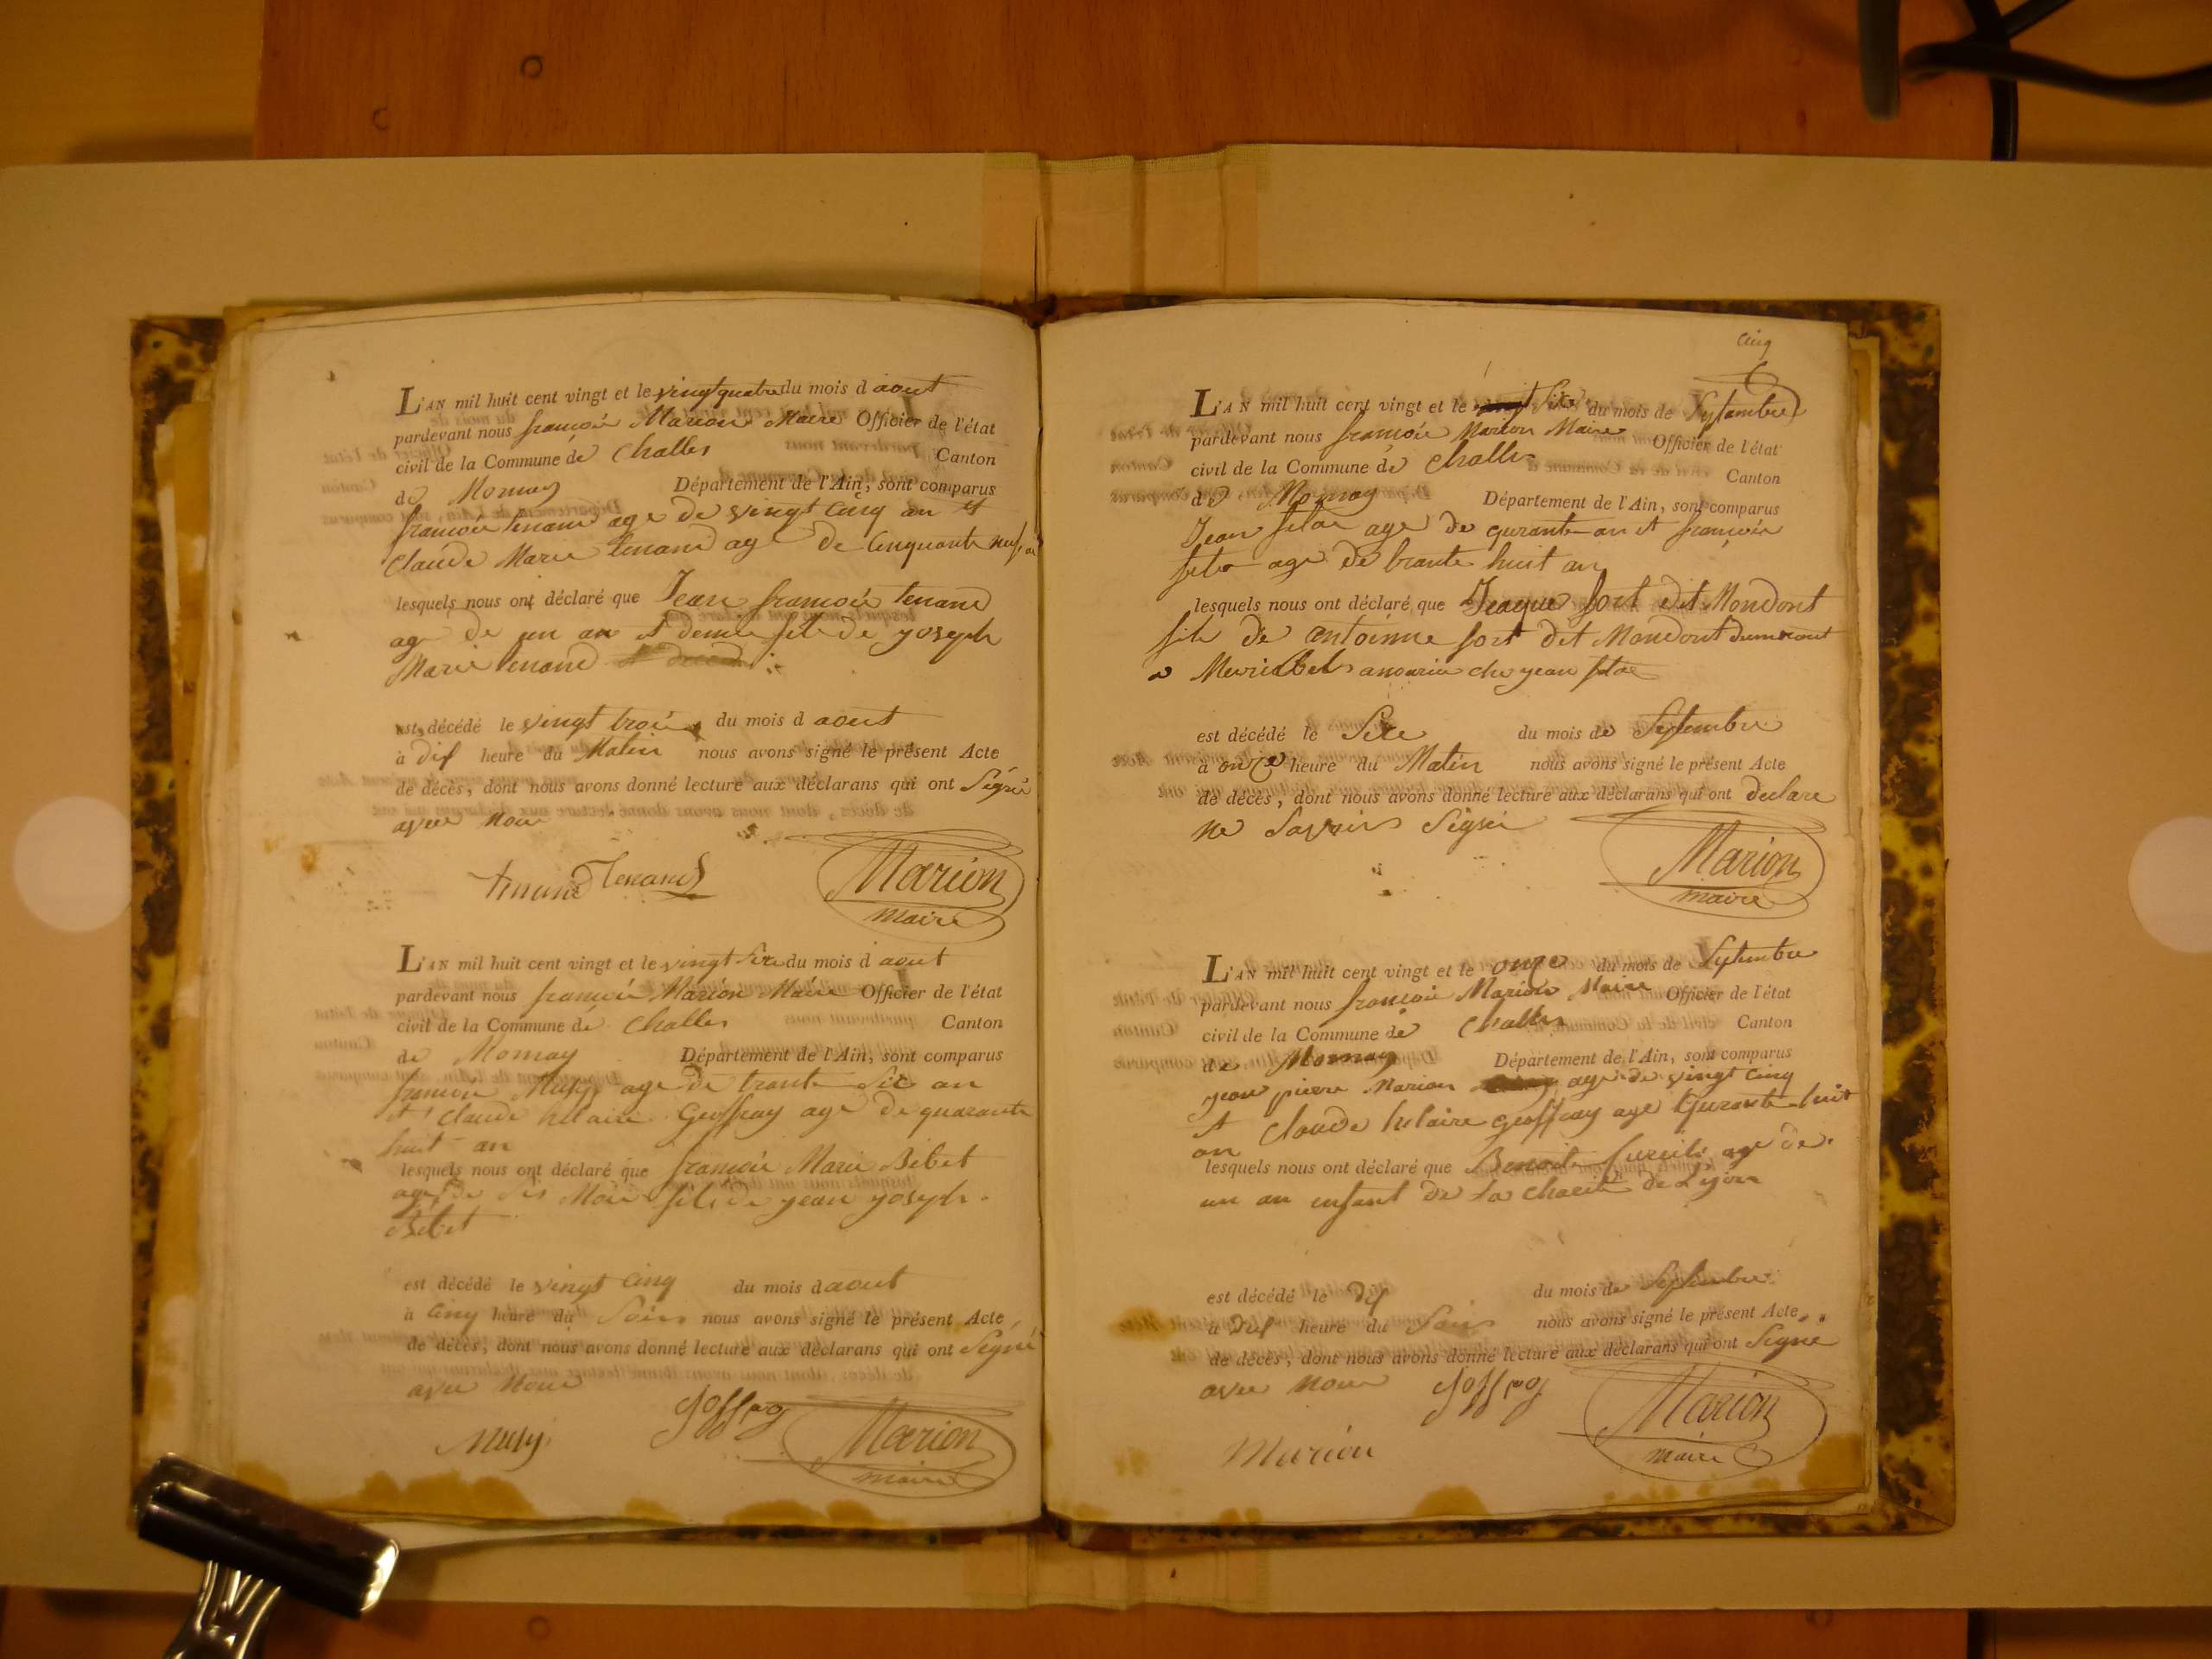 L'AN mil huit cent vingt et le vingt quatre du mois d aout
pardevant nous francois Marion Maire Officier de l'état
civil de la Commune de Challes Canton
de Mornay Département de l'Ain, sont comparus
francois tenand age de vingt cinq an et
Claude Marie tenand age de cinquante neuf an
lesquels nous ont déclaré que Jean francois tenand
age de un an et demie fils de yoseph
Marie tenand
est décédé le vingt trois du mois d aout
à dix heure du Matin nous avons signé le présent Acte
de décès, dont nous avons donné lecture aux déclarans qui ont Signé
avec nou
tenand Tenand Marion
maire
L'AN mil huit cent vingt et le vingt six du mois d aout
pardevant nous francois Marion Maire Officier de l'état
civil de la Commune de Challes Canton
de Mornay Département de l'Ain, sont comparus
francois age de trante six an
et Claude hilaire Geoffray age de quarante
huit an
lesquels nous ont déclaré que francois Marie Bebet
age de dis Mois fils de yean yoseph
Bebet
est décédé le vingt cinq du mois d aout
à cinq heure du Soir nous avons signé le présent Acte
de décès, dont nous avons donné lecture aux déclarans qui ont Signé
avec nous
Marion
maire
cinq
L'AN mil huit cent vingt et le six du mois de Septambre
pardevant nous francois Marion Maire Officier de l'état
civil de la Commune de Challes Canton
de Mornay Département de l'Ain, sont comparus
Jean age de qurante an et francois
age de trante huit an
lesquels nous ont déclaré que Jeaque fort dit Mondont
fils de antoinne fort dit Mondont
a yean
est décédé le Six du mois de Septembre
à onze heure du Matin nous avons signé le présent Acte
de décès, dont nous avons donné lecture aux déclarans qui ont declare
ne Savoir Signé
Marion
maire
L'AN mil huit cent vingt et le onze du mois de Septembre
pardevant nous francois Marion Maire Officier de l'état
civil de la Commune de Challes Canton
de Mornay Département de l'Ain, sont comparus
yean pierre Marion age de vingt cinq
et Claude hilaire geoffray age qurante huit
an
lesquels nous ont déclaré que Benoit age de
un an enfant de la charité de Lyon
est décédé le dix du mois de Septembre
à dix heure du Soir nous avons signé le présent Acte
de décès, dont nous avons donné lecture aux déclarans qui ont Signé
avec nous
Marion Marion
maire